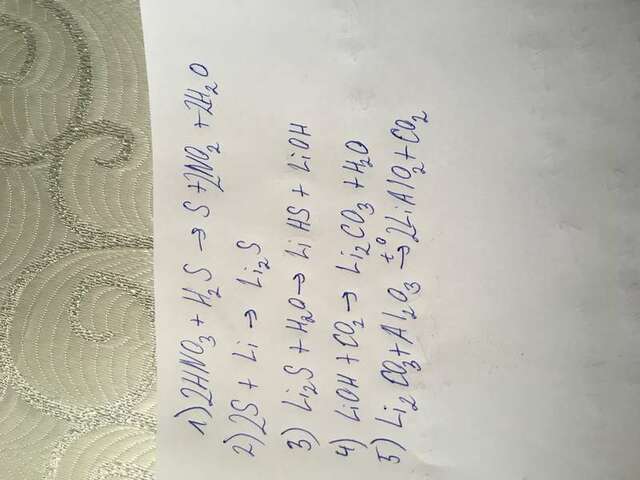 1) 2HNO₃ + H₂S → S + 2NO₂ + 2H₂O
2) 2S + Li → Li₂S
3) Li₂S + H₂O → LiHS + LiOH
4) LiOH + CO₂ → Li₂CO₃ + H₂O
5) Li₂CO₃ + Al₂O₃ →t° 2LiAlO₂ + CO₂